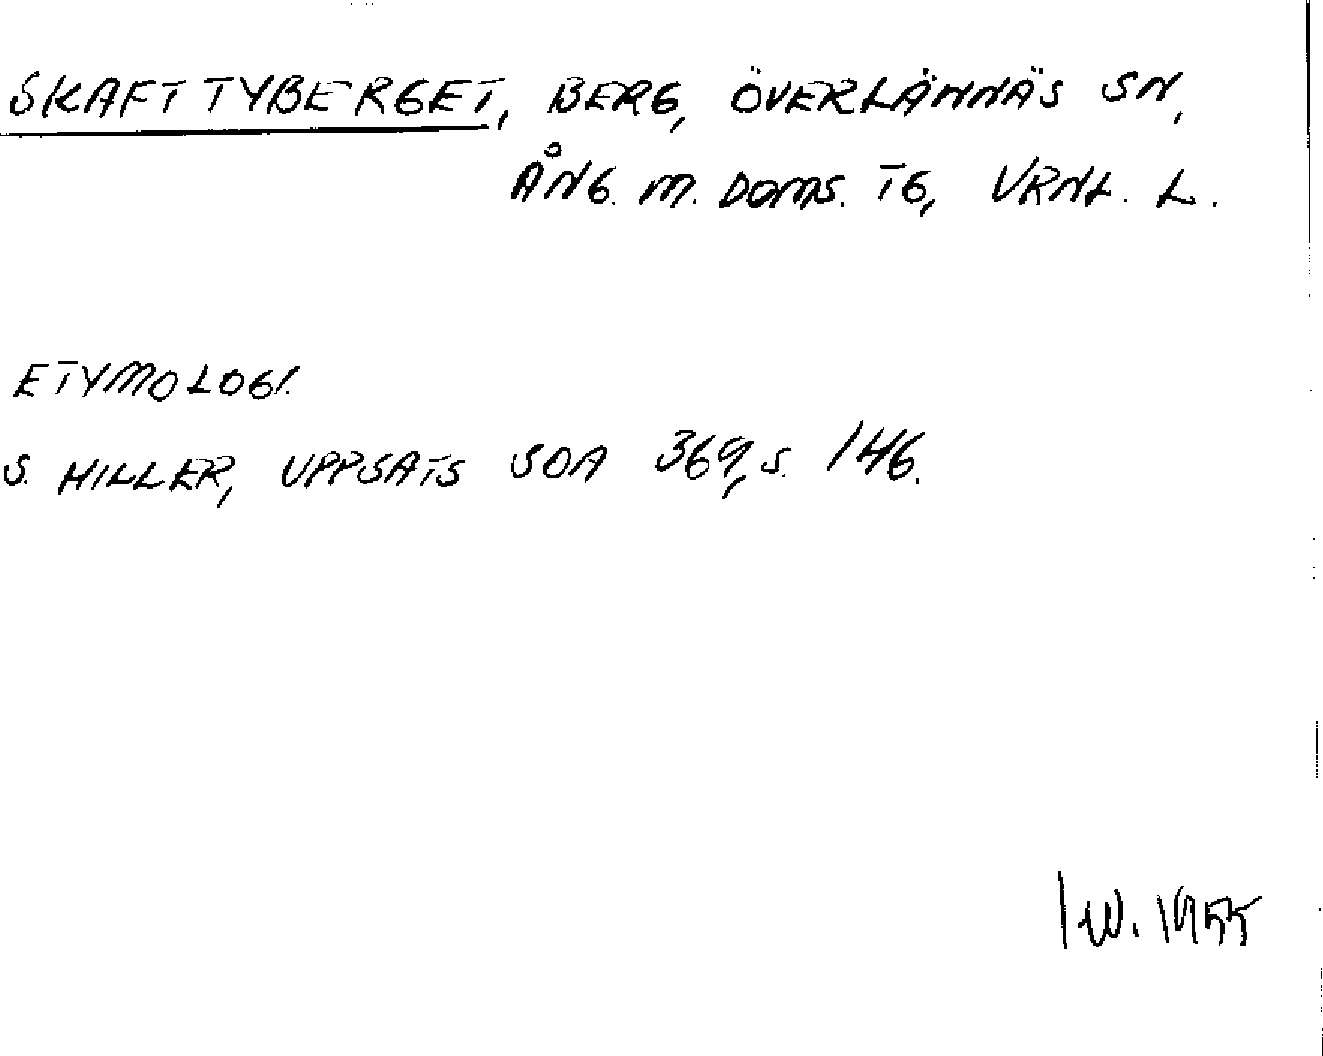 SKAFTTYBERGET, BERG, ÖVERLÄNNÄS SN,
ÅNG. M. DOMS. TG, VRNL. L.
ETYMOLOGI.
S. HILLER, UPPSATS SOA 369, S. 146.
IW. 1955